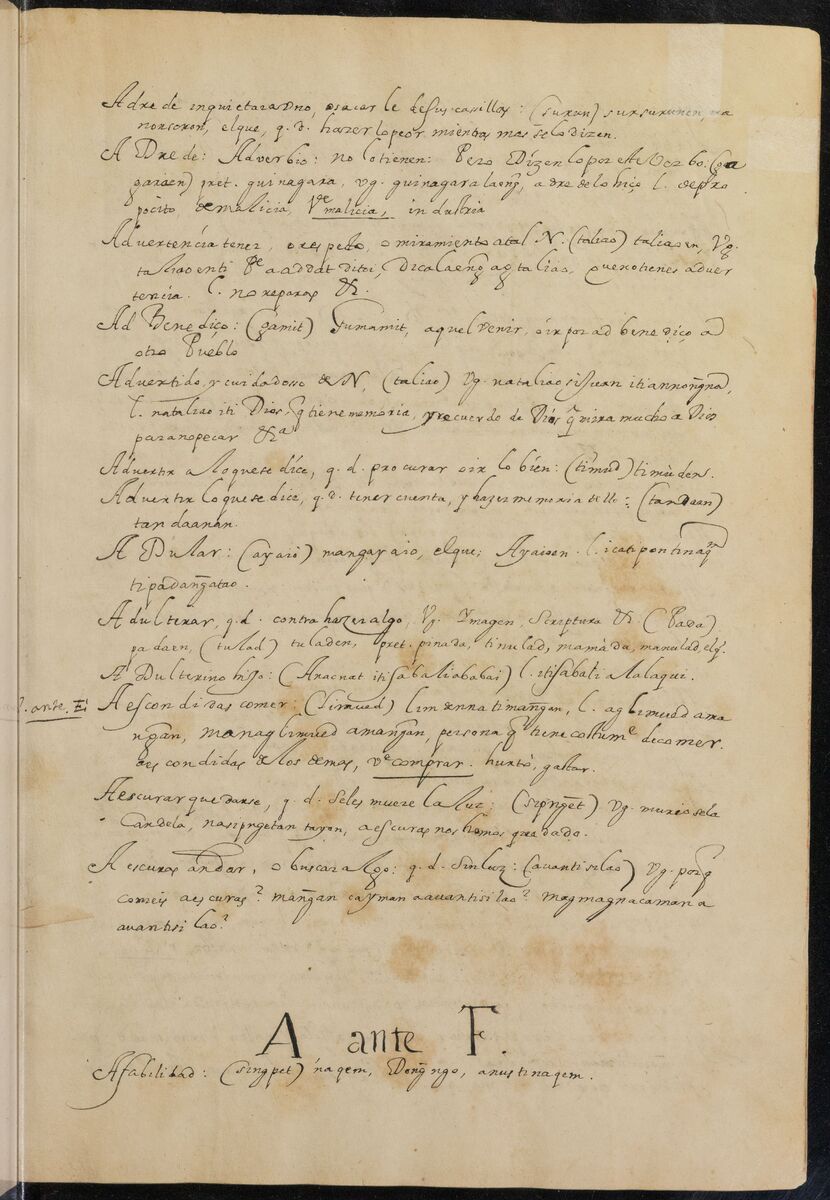 Adre de inquietar a Uno, o sacarle de sus casillas: (surun) sursurunen, ma
norscron, elque, q. d. hazer lo peor mientras mas se lo dizen.
A Drede: Adverbio: no lo tienen: Pero Dizen lo por este Verbo: (ga
garaen) pret. guinagara, vg. guinagara laeng, adrede lo hiço l. de pro
pocito, de malicia, Ve malicia, industria
Advertencia tener, o respecto, o miramiento a tal N. (taliao) taliaoen, Vg.
Ad Benediço: (gamit) Gumamit, aquel venir, o ir por ad benediço a
otro Pueblo
Advertido, y cuidadosso de N, (taliao) Vg. nataliao si Juan iti annongna,
l. nataliao iti Dios, q tiene memoria, y recuerdo de Dios q mira mucho a Dios
para no pecar &a
Advertir a lo que se dice, q. d. procurar oir lo bien: (timud) timudens.
Advertir lo que se dice, q. d. tener cuenta, y hazer memoria dello: (tandaan)
tandaanan.
A Dular: (ayaio) mangayaio, elque; Ayaioen. l. icatipon tinaq
ti padangatao.
Adulterar, q. d. contra hazer algo, Vg. Ymagen, Scriptura &. (Pada)
padaen, (tulad) tuladen, pret. pinada, tinulad, mamada, manulad, elq.
A Dulterino hijo: (Anacnat iti sabali a babai) l. iti sabali a lalaqui.
A. ante. E. Aescondidas comer: (Limued) limdenna ti mangan, l. aglimued a ma
ngan, managlimued a mangan, persona q tiene costume de comer
aescondidas de los demas, Ve comprar. hurtò, gastar.
Aescuras quedarse, q. d. Seles muere la luz: (sipnget) Vg. muriosela
Candela, nasipngetan tayon, aescuras nos hemos quedado.
A escuras andar, o buscar algo: q. d. Sin luz: (auanti silao) Vg. porq
comeis aescuras? mangan cayman a auanti silao? magmagna caman a
auanti silao?
A ante F.
Afabilidad: (singpet) naqem, Dongngo, anus ti naqem.